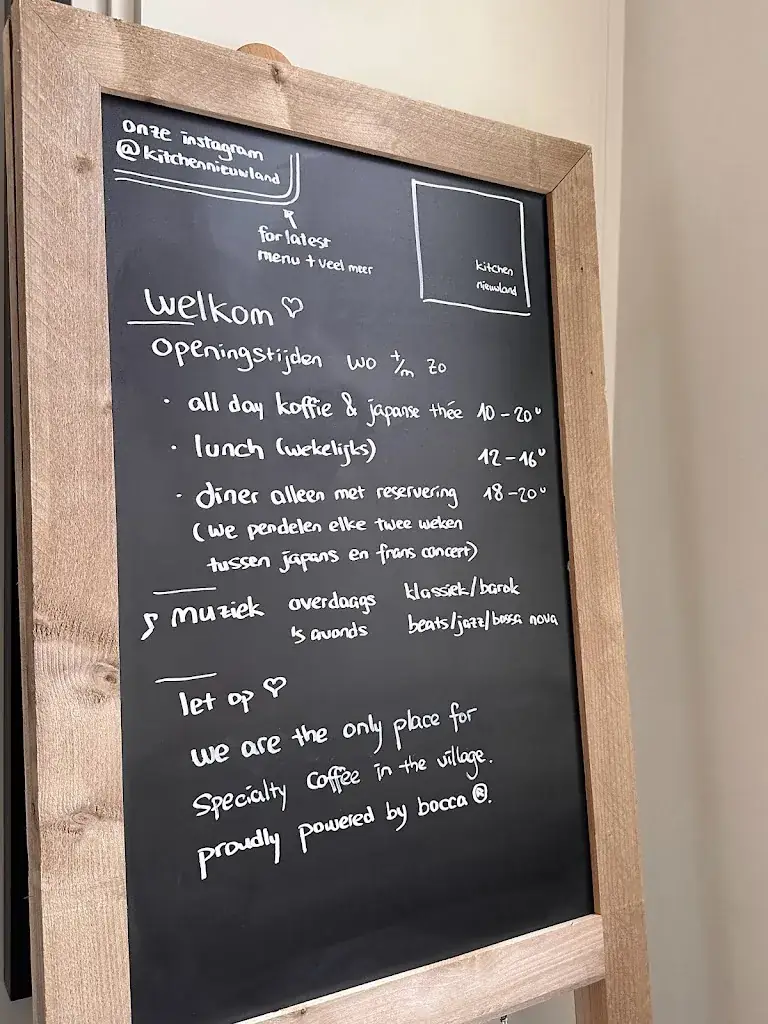 onze instagram
@kitchennieuwland
for latest
menu + veel meer
kitchen
nieuwland
welkom ♡
openingstijden wo t/m zo
· all day koffie & japanse thée 10 - 20ᵘ
· lunch (wekelijks) 12 - 16ᵘ
· diner alleen met reservering 18 - 20ᵘ
(we pendelen elke twee weken
tussen japans en frans concert)
muziek overdaags klassiek/barok
's avonds beats/jazz/bossa nova
let op ♡
we are the only place for
specialty coffee in the village.
proudly powered by bocca ®.